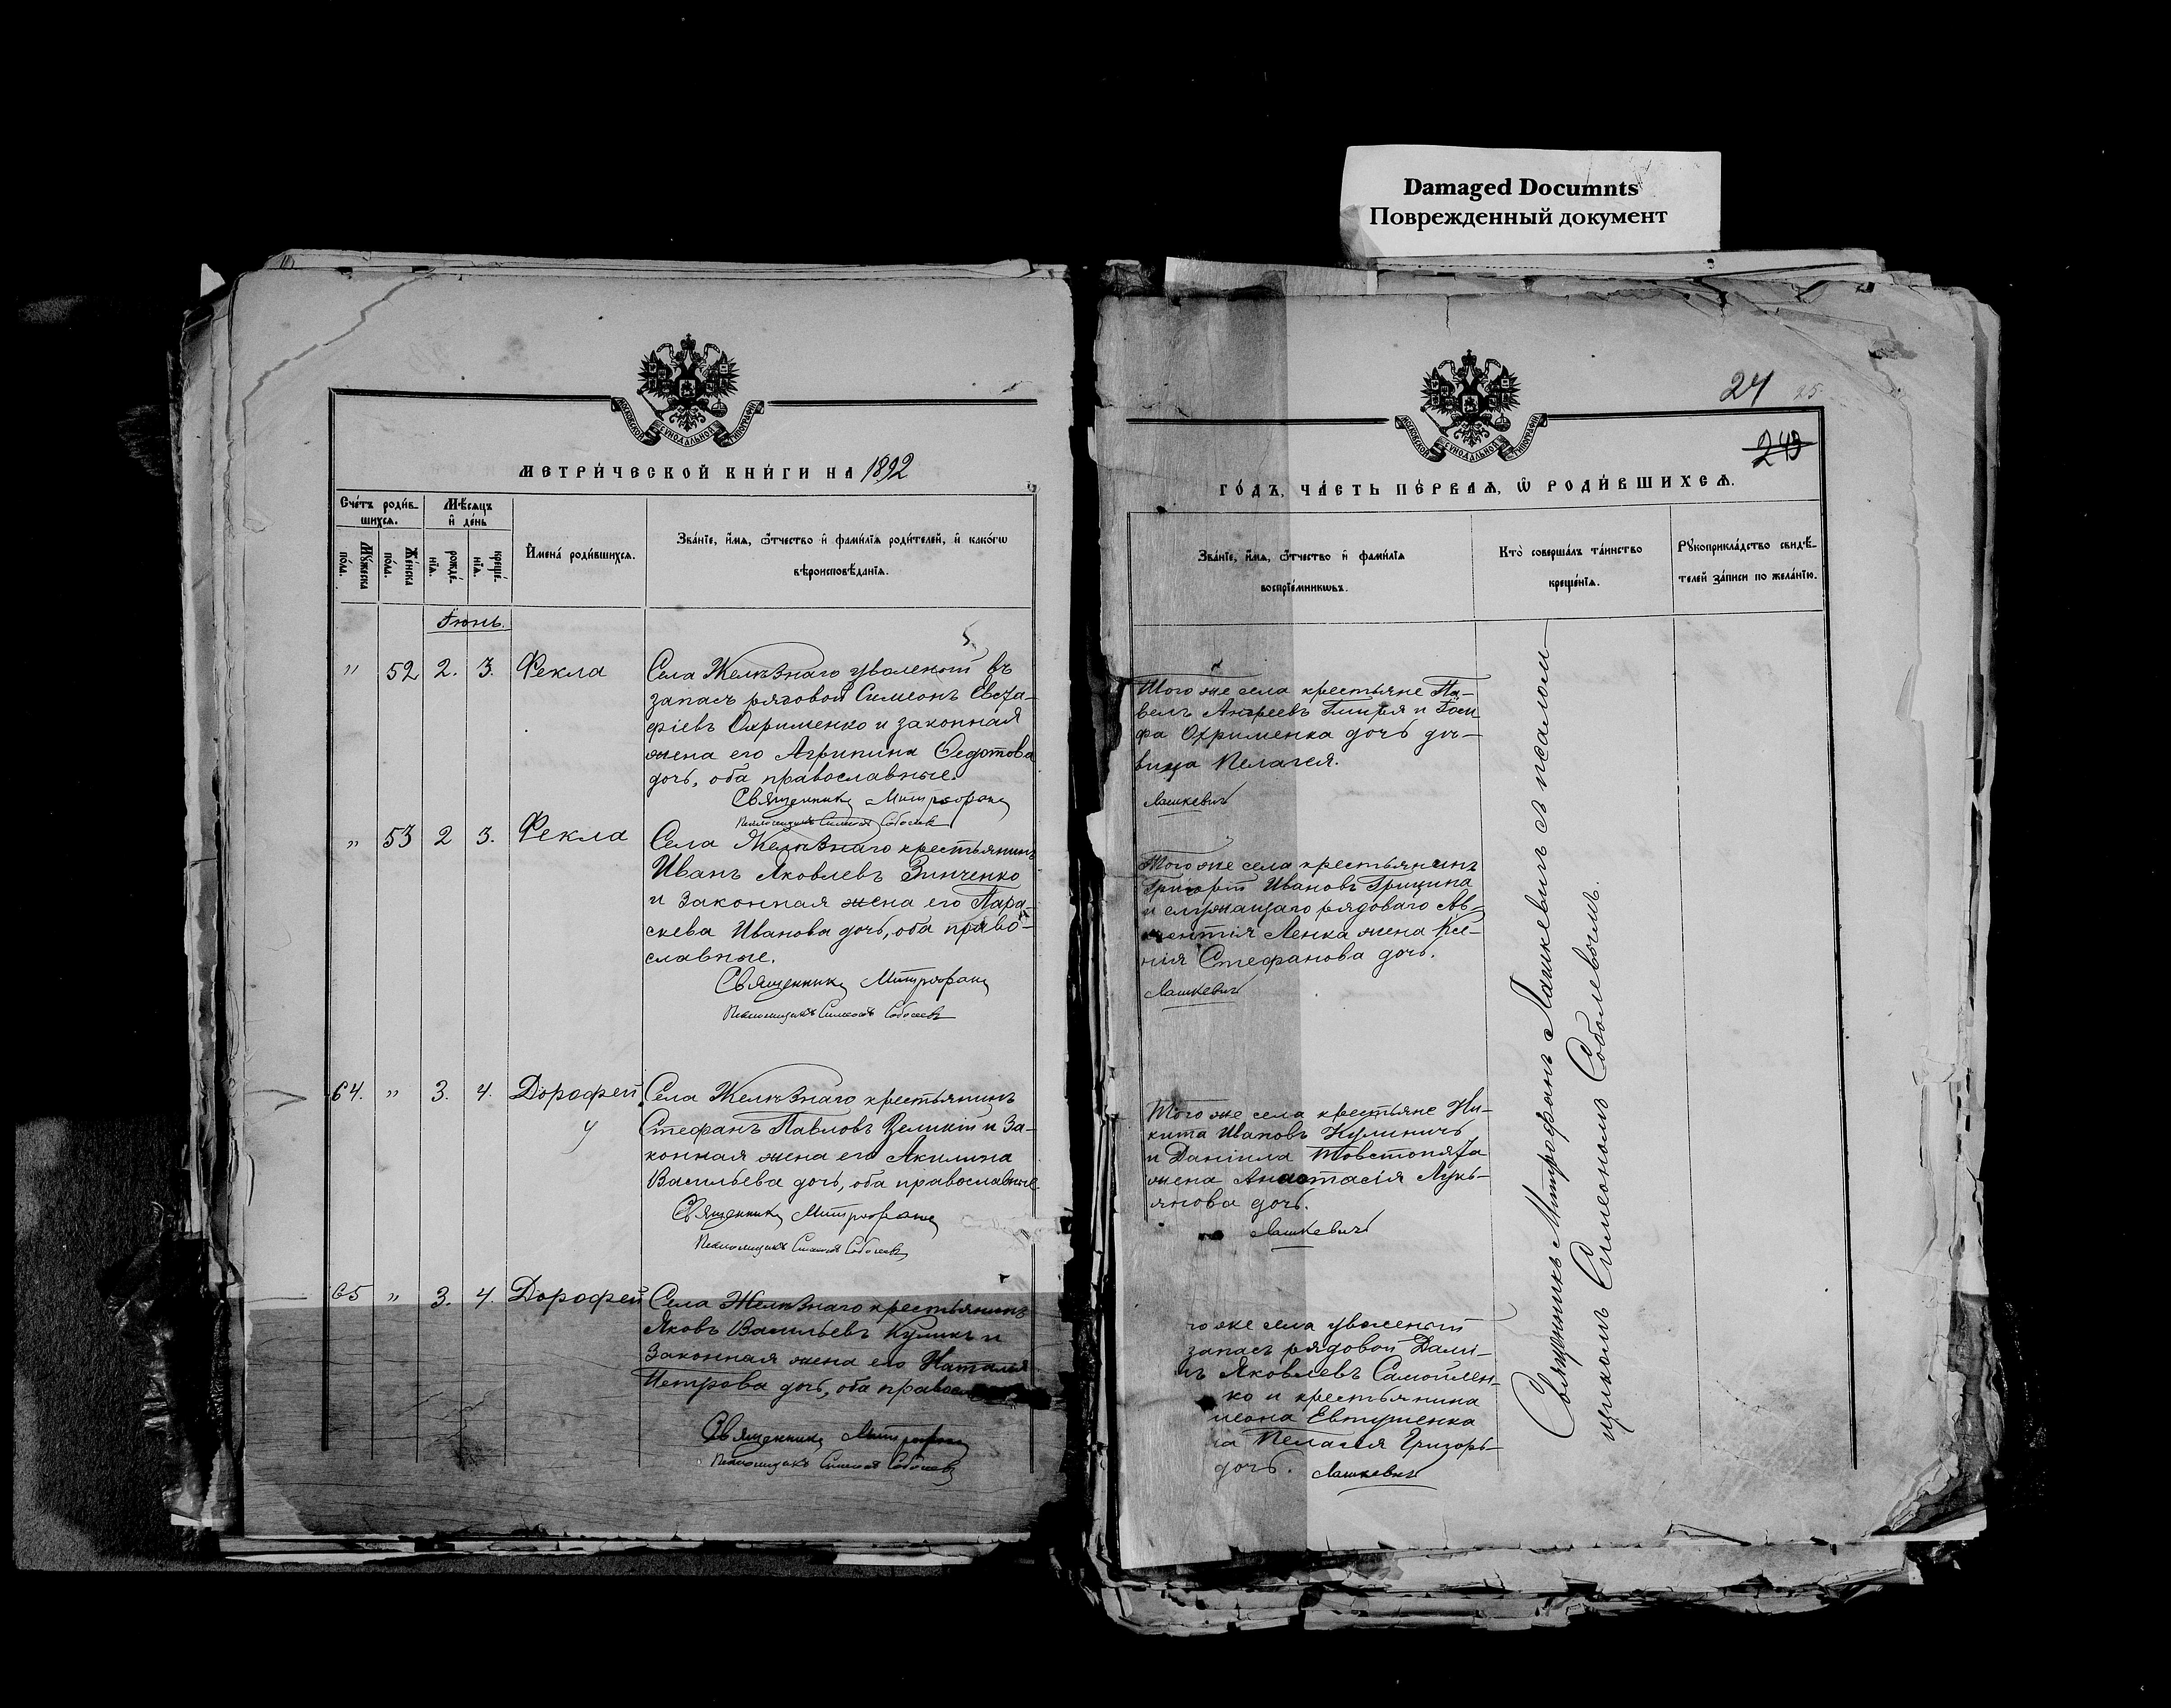 Damaged Documnts
Поврежденный документ
МОСКОВСКОЙ СѴНОДАЛЬНОЙ ТИПОГРАФІИ
МЕТРИ́ЧЕСКОЙ КНИ́ГИ НА 1892
Сче́тъ роди́в-
шихся.
Мѣ́сяцъ
и҆ де́нь
Му́жеска
по́ла.
Же́нска
по́ла.
рожде́-
нїя.
креще́-
нїя.
И҆мена̀ роди́вшихся.
Зва́нїе, и҆́мя, ѻ҆́тчество и҆ фами́лїя роди́телей, и҆ како́гѡ
вѣроисповѣ́данїя.
Іюнь.
" 52 2. 3. Фекла
Села Желѣзнаго уволеный въ
запасъ рядовой Симеонъ Евста-
фіевъ Охрименко и законная
жена его Агрипина Федотова
дочь, оба православные.
Священникъ Митрофанъ
Псаломщикъ Симеонъ Соболев
" 53 2 3. Фекла
Села Желѣзнаго крестьянинъ
Иванъ Яковлевъ Зинченко
и законная жена его Пара-
скева Иванова дочь, оба право-
славные.
Священникъ Митрофанъ
Псаломщикъ Симеонъ Соболев
64. " 3. 4. Дорофей
Села Желѣзнаго крестьянинъ
Стефанъ Павловъ Великій и за-
конная жена его Акилина
Васильева дочь, оба православные
Священникъ Митрофанъ
Псаломщикъ Симеонъ Соболев
65 " 3. 4. Дорофей
Села Желѣзнаго крестьянинъ
Яковъ Васильевъ Куликъ и
законная жена его Наталья
Петрова дочь, оба правосл
Священникъ Митрофанъ
Псаломщикъ Симеонъ Соболев
24 25
243
МОСКОВСКОЙ СѴНОДАЛЬНОЙ ТИПОГРАФІИ
ГО́ДЪ, ЧА́СТЬ ПЕ́РВАЯ, Ѡ҆ РОДИ́ВШИХСЯ.
Зва́нїе, и҆́мя, ѻ҆́тчество и҆ фами́лїя
воспрїе́мникѡвъ.
Кто̀ соверша́лъ та́инство
креще́нїя.
Рꙋкоприкла́дство свидѣ́-
телей за́писи по жела́нїю.
Того же села крестьяне Па-
велъ Андреевъ и Іоси
фа Охрименка дочь дѣ-
вица Пелагея.
Лашкевичъ
Того же села крестьянинъ
Григорій Ивановъ Грицина
и служащаго рядоваго Ав-
ксентія Ленка жена Ксе-
нія Стефанова дочь.
Лашкевичъ
Того же села крестьяне Ни-
кита Ивановъ Кулиничъ
и Даніила Товстопята
жена Анастасія Лукь-
янова дочь.
Лашкевичъ
го же села уволеный
запасъ рядовой Дамі-
нъ Яковлевъ Самойлен-
ко и крестьянина
меона Евтушенка
на Пелагея Григорь-
дочь. Лашкевичъ
Священникъ Митрофанъ Лашкевичъ съ псалом-
щикомъ Симеономъ Соболевымъ.